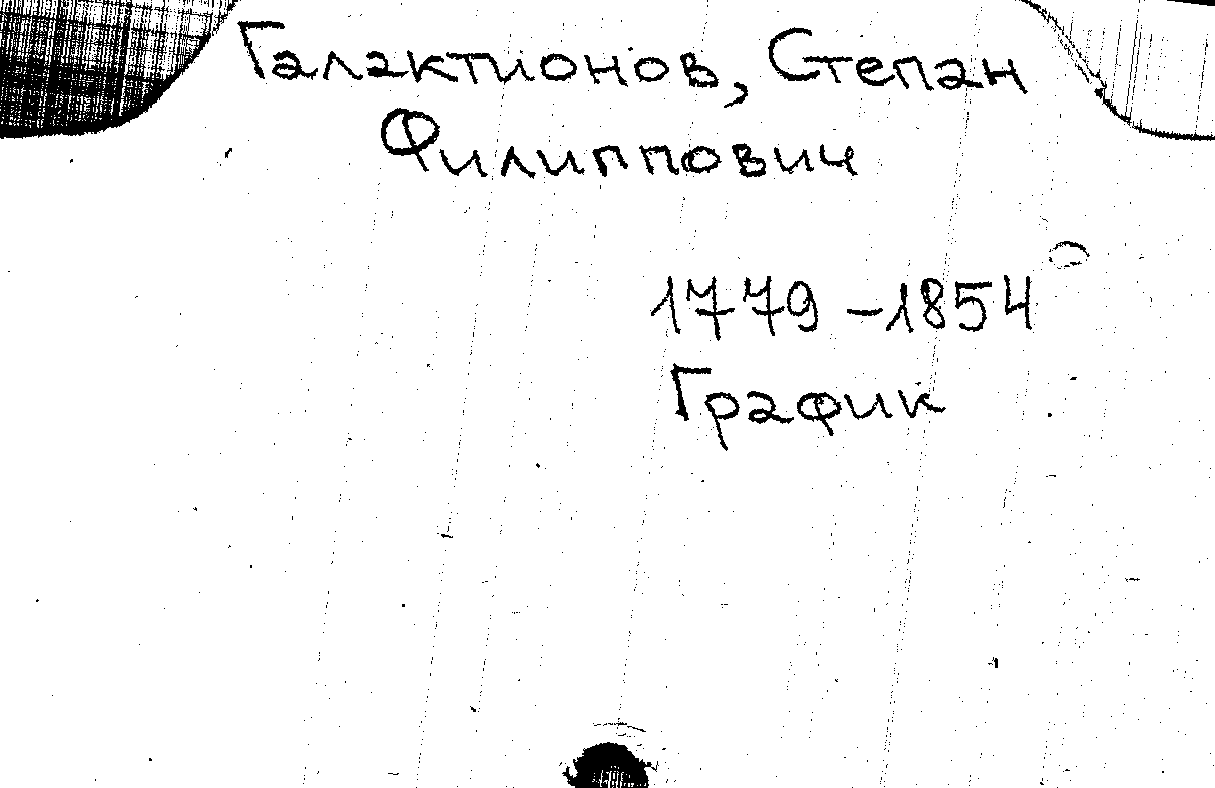 Галактионов, Степан
Филиппович
1779-1854
График